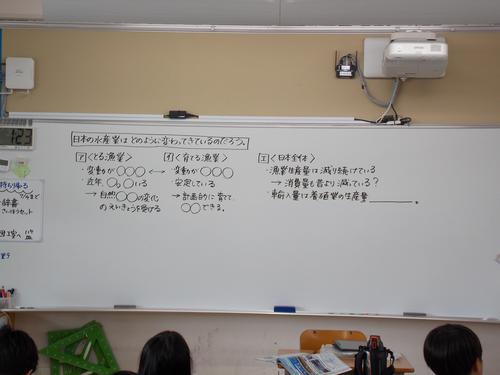 日本の水産業はどのように変わってきているのだろう。
ア 〈とる漁業〉
・変動が○○○
・近年○。○いる
→自然○○の変化
のえいきょうを受ける
↔
イ 〈育てる漁業〉
・変動が○○○
・安定している
→計画的に育て
○○できる。
エ 〈日本全体〉
・漁業生産量は減り続けている
→消費量も昔より減っている？
・輸入量は養殖業の生産量＿＿＿＿。
持ち帰る
辞書
さいほうセット